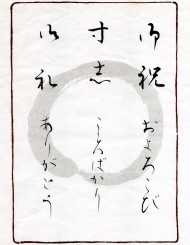 御祝
およろこび
寸志
こころばかり
御礼
ありがとう